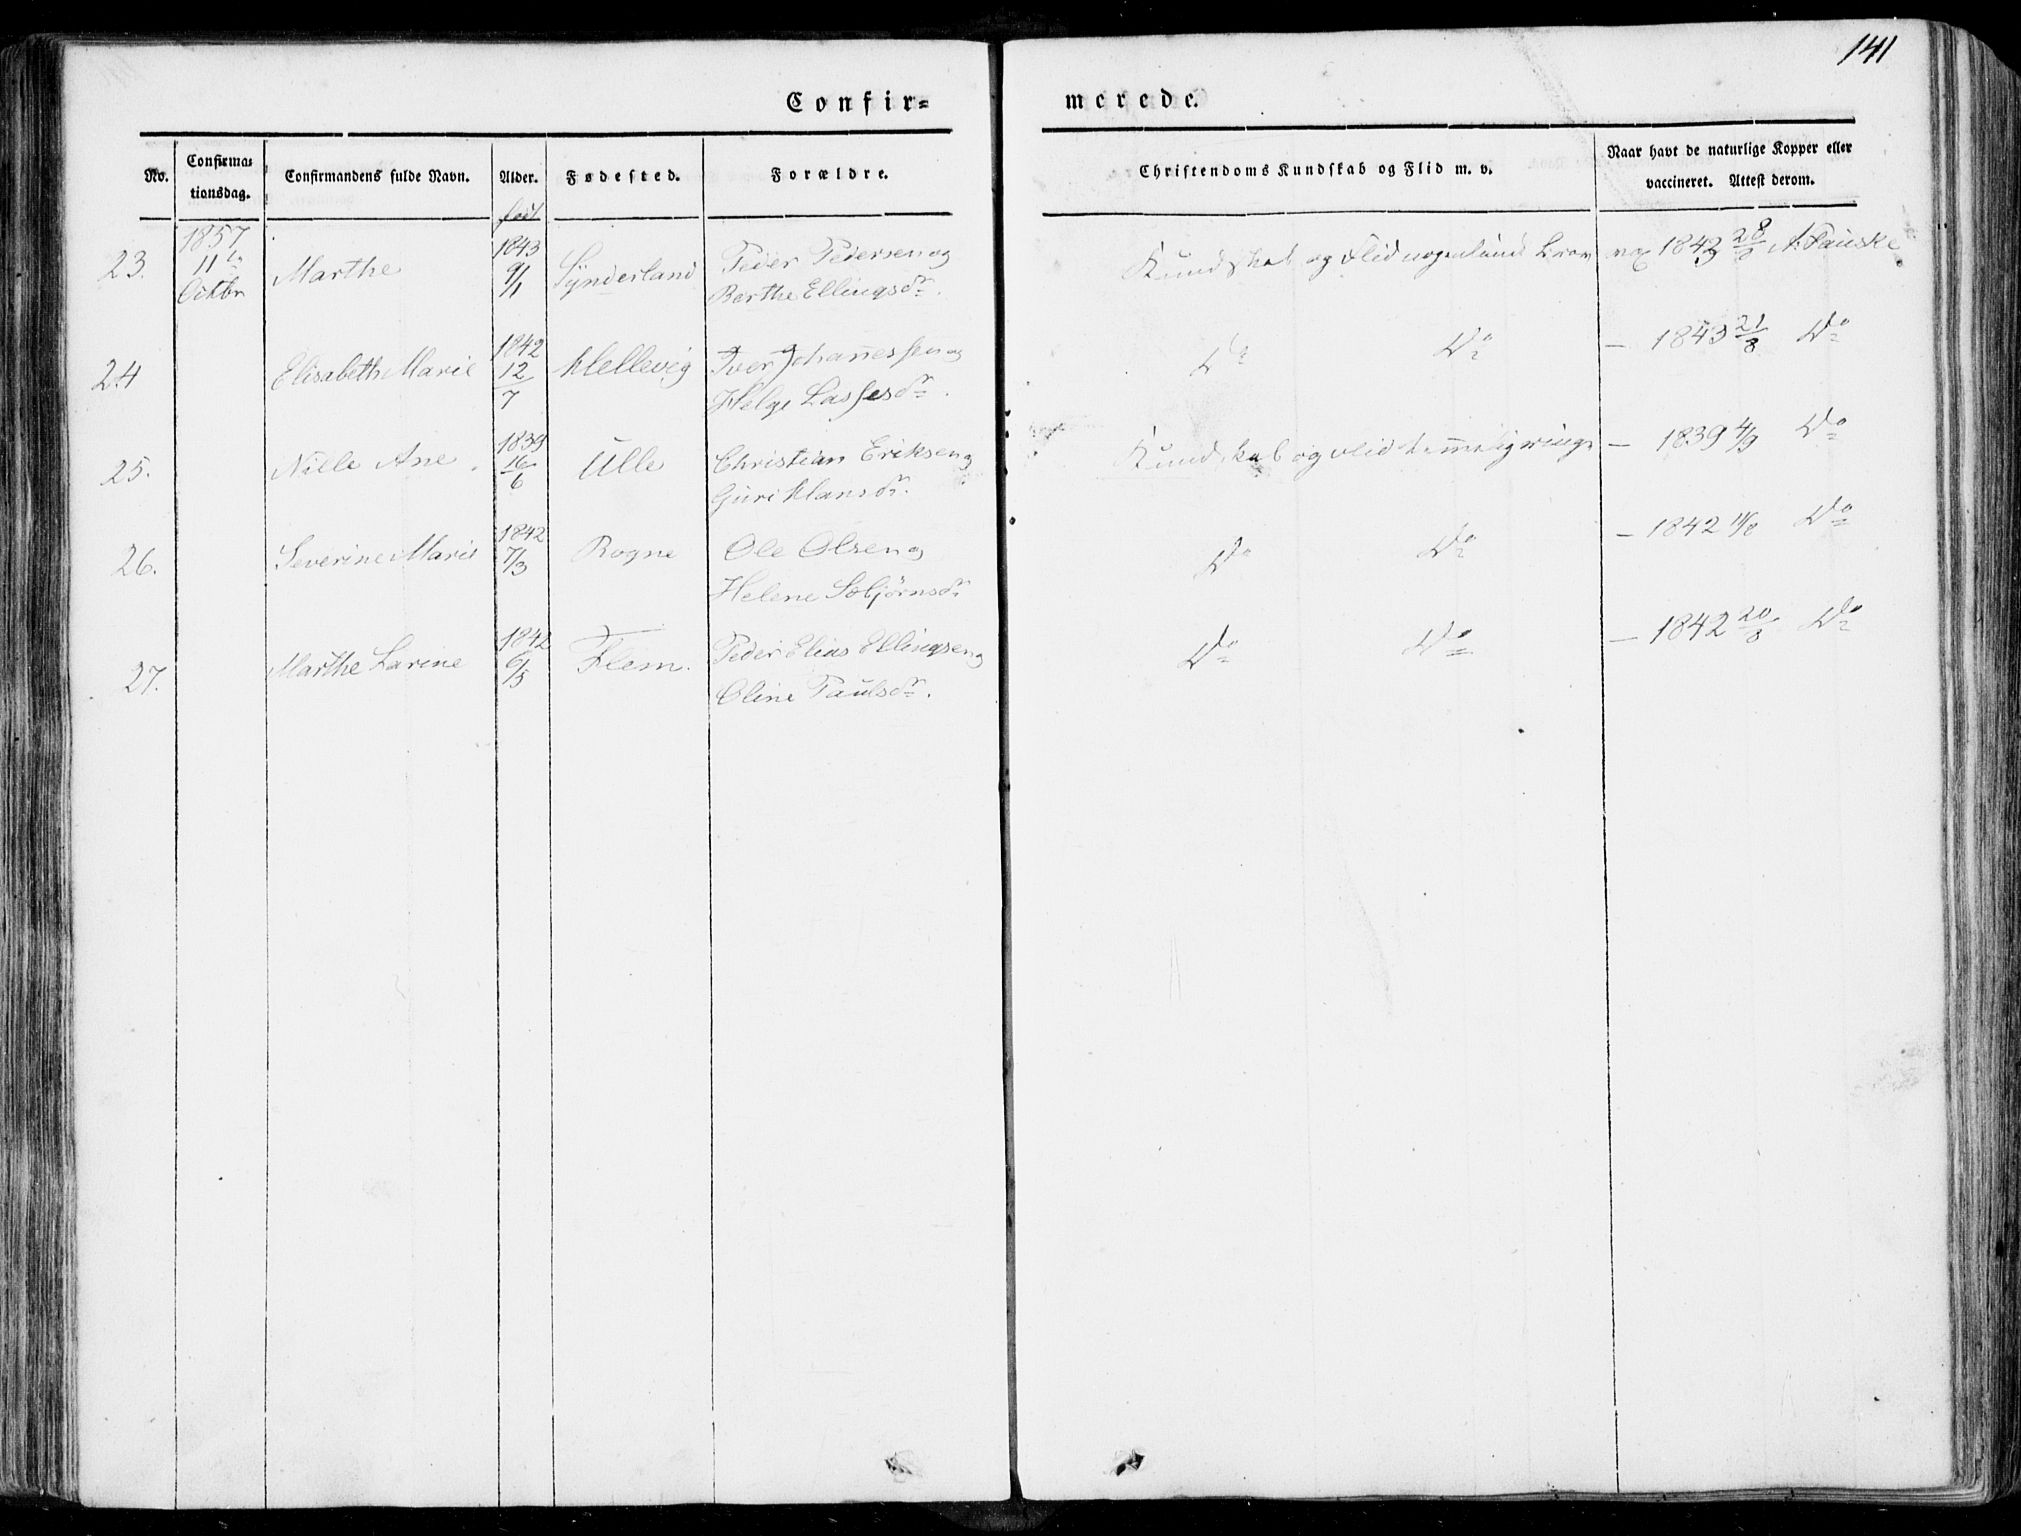 141
Confir=
merede.
No.
Confirma=
tionsdag.
Confirmandens fulde Navn.
Alder.
Fødested.
Forældre.
Christendoms Kundskab og Flid m. v.
Naar havt de naturlige Kopper eller
vaccineret. Attest derom.
født
23. 1857 11te Octbr Marthe 1843 9/1 Synderland Peder Pedersen og
Berthe Ellingsdr.
Kundskab og Flid nogenlunde vac 1843 28/8 A. Pauske
24 Elisabeth Marie 1842 12/7 Hellevig Iver Johannessen og
Helge Lassesdr.
Do Do — 1843 21/8 Do
25. Nille Ane 1839 16/6 Ulle Christian Eriksen og
Guri Hansdr.
Kundskab og Flid temmelig ringe — 1839 4/9 Do
26. Severine Marie 1842 7/3 Rogne Ole Olsen og
Helene Sebjørnsdr
Do Do — 1842 Do
27. Marthe Larine 1842 6/5 Flem. Peder Elias Ellingsen og
Oline Paulsdr.
Do Do — 1842 20/8 Do